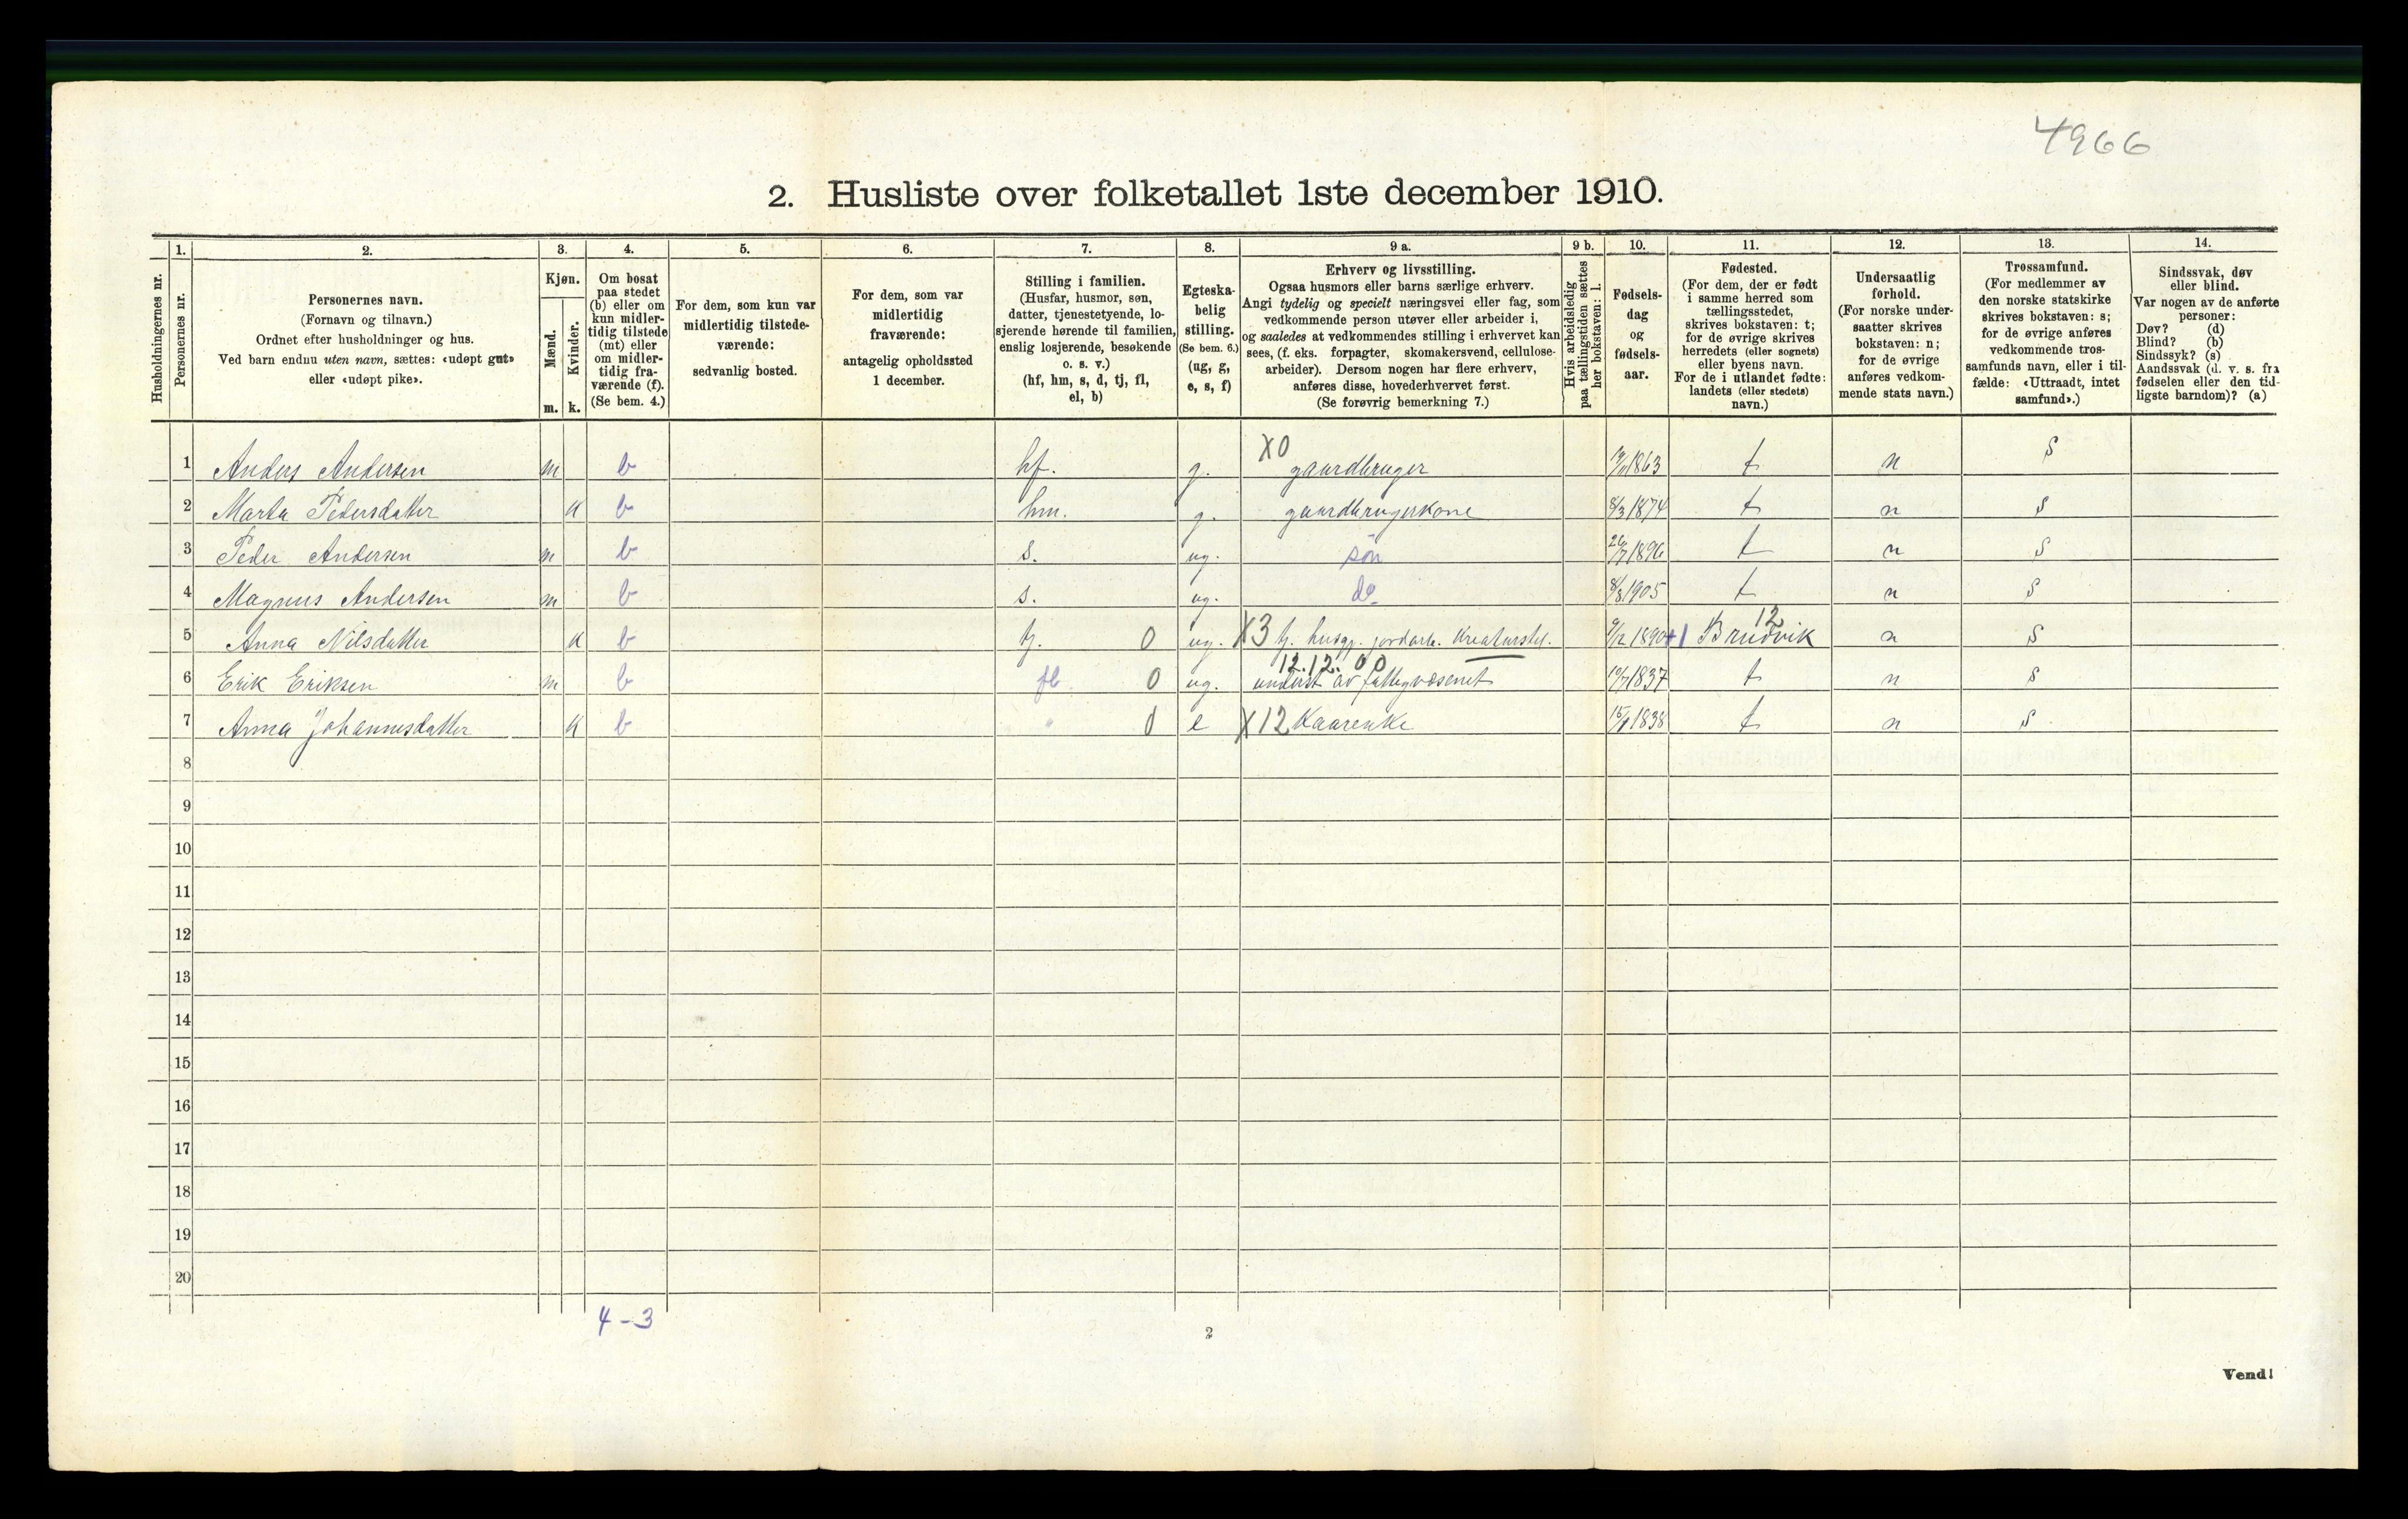 4966
2. Husliste over folketallet 1ste december 1910.
Husholdningernes nr.
1. Personernes nr.
2.
Personernes navn.
(Fornavn og tilnavn.)
Ordnet efter husholdninger og hus.
Ved barn endnu uten navn, sættes: «udøpt gut»
eller «udøpt pike».
3.
Kjøn.
Mænd.
Kvinder.
m. k.
4.
Om bosat
paa stedet
(b) eller om
kun midler-
tidig tilstede
(mt) eller
om midler-
tidig fra-
værende (f).
(Se bem. 4.)
5.
For dem, som kun var
midlertidig tilstede-
værende:
sedvanlig bosted.
6.
For dem, som var
midlertidig
fraværende:
antagelig opholdssted
1 december.
7.
Stilling i familien.
(Husfar, husmor, søn,
datter, tjenestetyende, lo-
sjerende hørende til familien,
enslig losjerende, besøkende
o. s. v.)
(hf, hm, s, d, tj, fl,
el, b)
8.
Egteska-
belig
stilling.
(Se bem. 6.)
(ug, g,
e, s, f)
9 a.
Erhverv og livsstilling.
Ogsaa husmors eller barns særlige erhverv.
Angi tydelig og specielt næringsvei eller fag, som
vedkommende person utøver eller arbeider i,
og saaledes at vedkommendes stilling i erhvervet kan
sees, (f. eks. forpagter, skomakersvend, cellulose-
arbeider). Dersom nogen har flere erhverv,
anføres disse, hovederhvervet først.
(Se forøvrig bemerkning 7.)
9 b.
Hvis arbeidsledig
paa tællingstiden sættes
her bokstaven: l.
10.
Fødsels-
dag
og
fødsels-
aar.
11.
Fødested.
(For dem, der er født
i samme herred som
tællingsstedet,
skrives bokstaven: t;
for de øvrige skrives
herredets (eller sognets)
eller byens navn.
For de i utlandet fødte:
landets (eller stedets)
navn.)
12.
Undersaatlig
forhold.
(For norske under-
saatter skrives
bokstaven: n;
for de øvrige
anføres vedkom-
mende stats navn.)
13.
Trossamfund.
(For medlemmer av
den norske statskirke
skrives bokstaven: s;
for de øvrige anføres
vedkommende tros-
samfunds navn, eller i til-
fælde: «Uttraadt, intet
samfund».)
14.
Sindssvak, døv
eller blind.
Var nogen av de anførte
personer:
Døv? (d)
Blind? (b)
Sindssyk? (s)
Aandssvak (d. v. s. fra
fødselen eller den tid-
ligste barndom)? (a)
X0
1 Anders Andersen m b hf. g. gaardbruger 1863 t n s
2 Marta Pedersdatter k b hm. g. gaardbrugerkone 8/3 1874 t n s
3 Peder Andersen m b s. ug. søn 26/7 1896 t n s
4 Magnus Andersen m b s. ug. do 8/8 1905 t n s
12
5 Anna Nilsdatter k b tj. 0 ug. X3 tj. husgj. jordarb. Kreaturstel. 9/12 1890 +1 Brudvik n s
12.12. 00
6 Erik Eriksen m b fl 0 ug. underst av fattigvæsenet 10/7 1837 t n s
7 Anna Johannesdatter k b " 0 e X12 Kaarenke 1838 t n s
8
9
10
11
12
13
14
15
16
17
18
19
20
4-3
2
Vend!